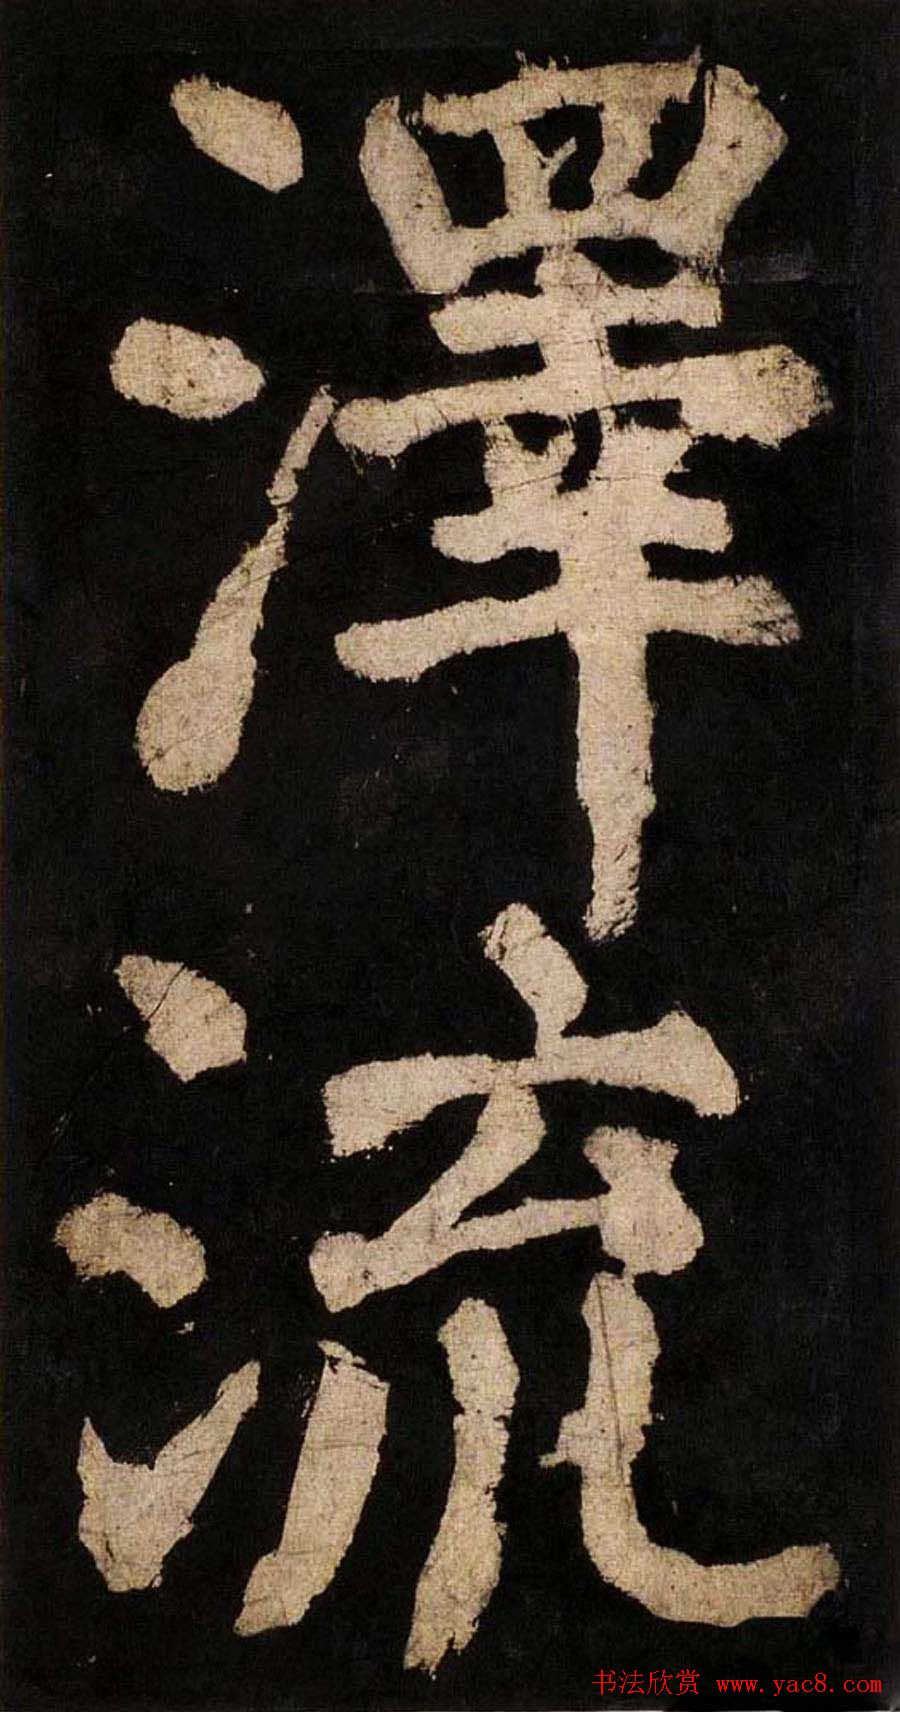 澤
流
书法欣赏 www.yac8.com